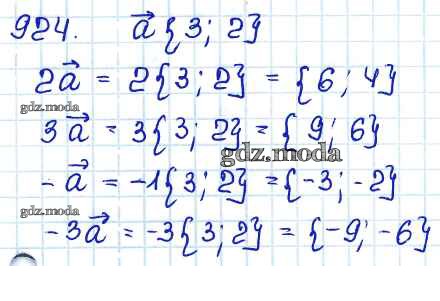 924. a⃗ {3; 2}
2a⃗ = 2{3; 2} = {6; 4}
gdz.moda
3a⃗ = 3{3; 2} = {9; 6}
gdz.moda
-a⃗ = -1{3; 2} = {-3; -2}
gdz.moda
-3a⃗ = -3{3; 2} = {-9; -6}